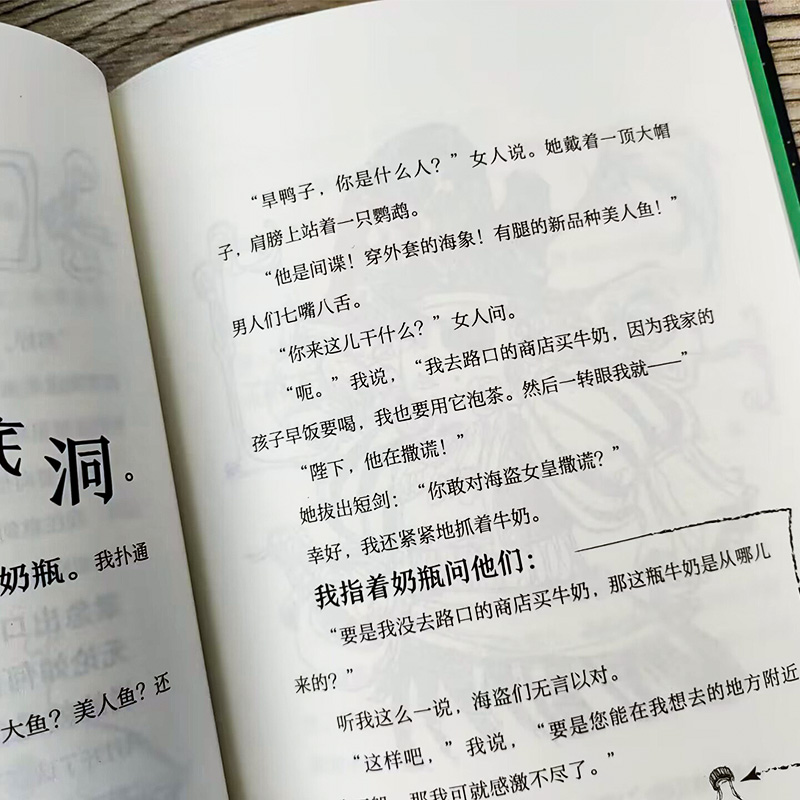 洞。
奶瓶。我扑通
大鱼？美人鱼？还
“旱鸭子，你是什么人？”女人说。她戴着一顶大帽
子，肩膀上站着一只鹦鹉。
“他是间谍！穿外套的海象！有腿的新品种美人鱼！”
男人们七嘴八舌。
“你来这儿干什么？”女人问。
“呃。”我说，“我去路口的商店买牛奶，因为我家的
孩子早饭要喝，我也要用它泡茶。然后一转眼我就——”
“陛下，他在撒谎！”
她拔出短剑：“你敢对海盗女皇撒谎？”
幸好，我还紧紧地抓着牛奶。
我指着奶瓶问他们：
“要是我没去路口的商店买牛奶，那这瓶牛奶是从哪儿
来的？”
听我这么一说，海盗们无言以对。
“这样吧，”我说，“要是您能在我想去的地方附近
那我可就感激不尽了。”